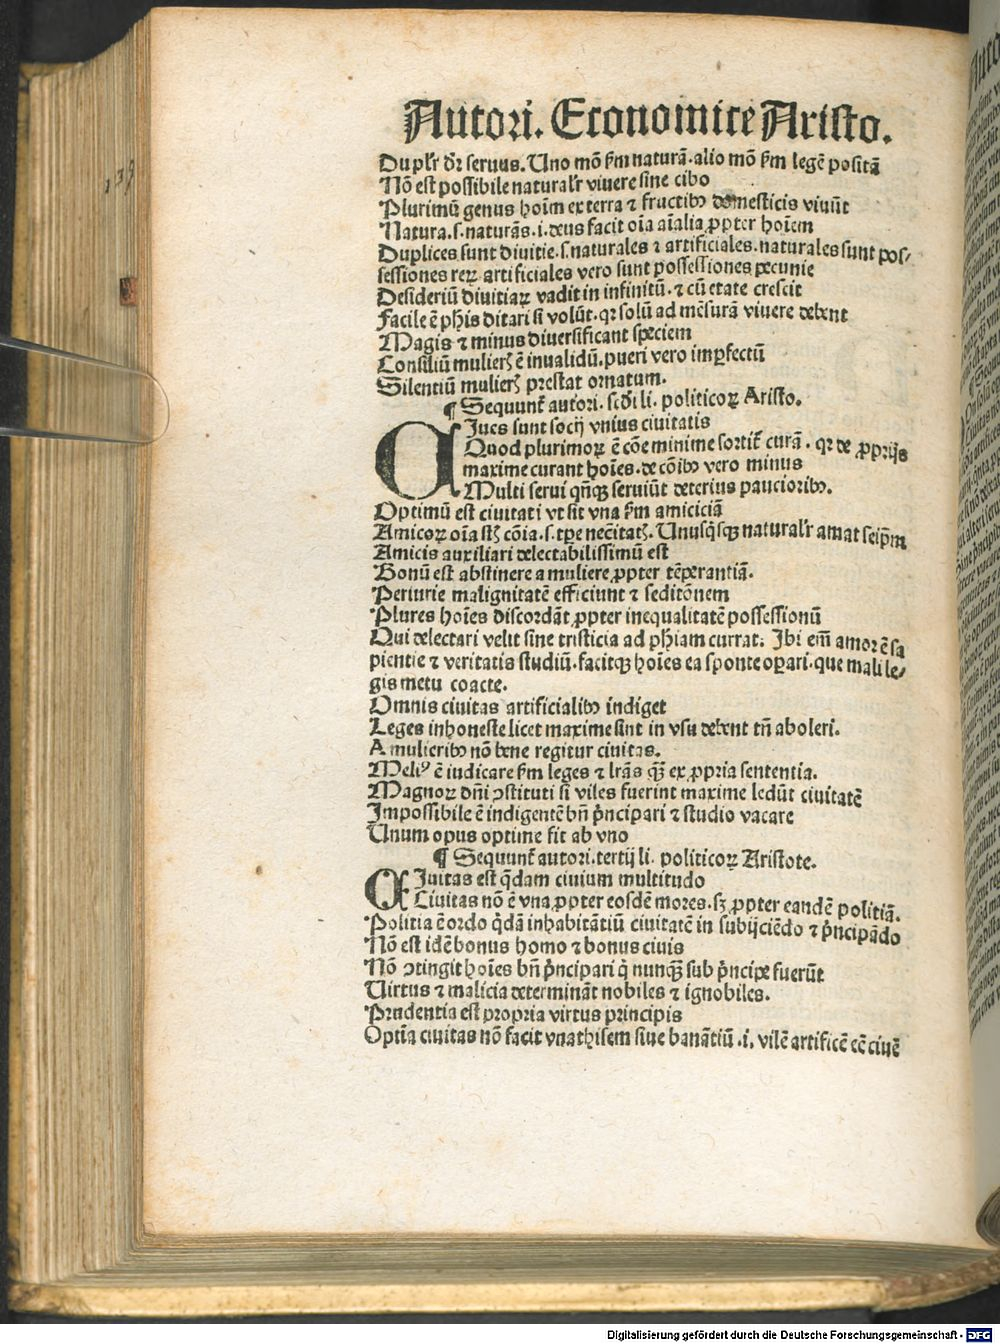 Autori. Economice Aristo.
139
Duplr̄ dr̄ seruus. Uno mō ẜm naturā. alio mō ẜm legē positā
Nō est possibile naturalr̄ viuere sine cibo
Plurimū genus hoīm ex terra ⁊ fructibꝰ domesticis viuūt
Natura. s. naturās. i. deus facit oīa aīalia ꝓpter hoīem
Duplices sunt diuitie. s. naturales ⁊ artificiales. naturales sunt pos⸗
sessiones reꝝ artificiales vero sunt possessiones pecunie
Desideriū diuitiaꝝ vadit in infinitū. ⁊ cū etate crescit
Facile ē phīs ditari si volūt. qꝛ solū ad mēsurā viuere debent
Magis ⁊ minus diuersificant speciem
Consiliū mulieꝝ ē inualidū. pueri vero imꝑfectū
Silentiū mulieꝝ prestat ornatum.
¶ Sequunt̄ autori. scd̄i li. politicoꝝ Aristo.
CIues sunt socij vnius ciuitatis
Quod plurimoꝝ ē cōe minime sortit̄ curā. qꝛ de ꝓprijs
maxime curant hoīes. de cōibꝰ vero minus
Multi serui qn̄qꝫ seruiūt deterius paucioribꝰ.
Optimū est ciuitati vt sit vna ẜm amiciciā
Amicoꝝ oīa st̄ cōia. s. tꝑe nec̄itat. Unusqͥsqꝫ naturalr̄ amat seip̄m
Amicis auxiliari delectabilissimū est
Bonū est abstinere a muliere ꝓpter tēperantiā.
Periurie malignitatē efficiunt ⁊ seditōnem
Plures hoīes discordāt ꝓpter inequalitatē possessionū
Qui delectari velit sine tristicia ad phīam currat. Ibi em̄ amor ē sa
pientie ⁊ veritatis studiū. facitqꝫ hoīes ea sponte oꝑari. que mali le⸗
gis metu coacte.
Omnis ciuitas artificialibꝰ indiget
Leges inhoneste licet maxime sint in vsu debent tn̄ aboleri.
A mulieribꝰ nō bene regitur ciuitas.
Meliꝰ ē iudicare ẜm leges ⁊ lrās qͣꝫ ex ꝓpria sententia.
Magnoꝝ dn̄i ꝯstituti si viles fuerint maxime ledūt ciuitatē
Impossibile ē indigentē bn̄ pͥncipari ⁊ studio vacare
Unum opus optime fit ab vno
¶ Sequunt̄ autori. tertij li. politicoꝝ Aristote.
CIuitas est qͣdam ciuium multitudo
Ciuitas nō ē vna ꝓpter eosdē mores. sꝫ ꝓpter eandē politiā.
Politia ē ordo qͥdā inhabitātiū ciuitatē in subijciēdo ⁊ pͥncipādo
Nō est idē bonus homo ⁊ bonus ciuis
Nō ꝯtingit hoīes bn̄ pͥncipari qͥ nunqͣꝫ sub pͥncipe fuerūt
Uirtus ⁊ malicia determināt nobiles ⁊ ignobiles.
Prudentia est propria virtus principis
Optīa ciuitas nō facit vnathisem siue banātiū. i. vilē artificē eē ciuē
Digitalisierung gefördert durch die Deutsche Forschungsgemeinschaft - DFG